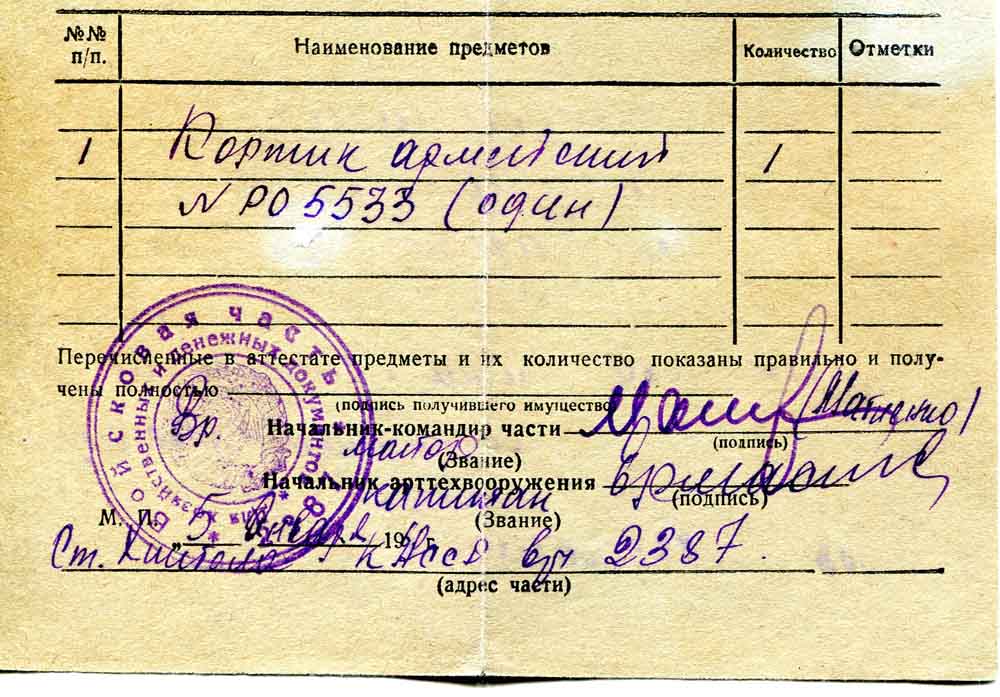 №№ п/п. Наименование предметов Количество Отметки
1 Кортик армейский 1
№ РО 5533 (один)
Перечисленные в аттестате предметы и их количество показаны правильно и полу-
чены полностью
(подпись получившего имущество)
Вр. Начальник-командир части
майор (подпись)
(Звание)
Начальник арттехвооружения
капитан (подпись)
(Звание)
М. П. „5 января 19 г.
Ст. Хийтола КАССР в/ч 2387.
(адрес части)
Войсковая часть
для хозяйственных и денежных документов